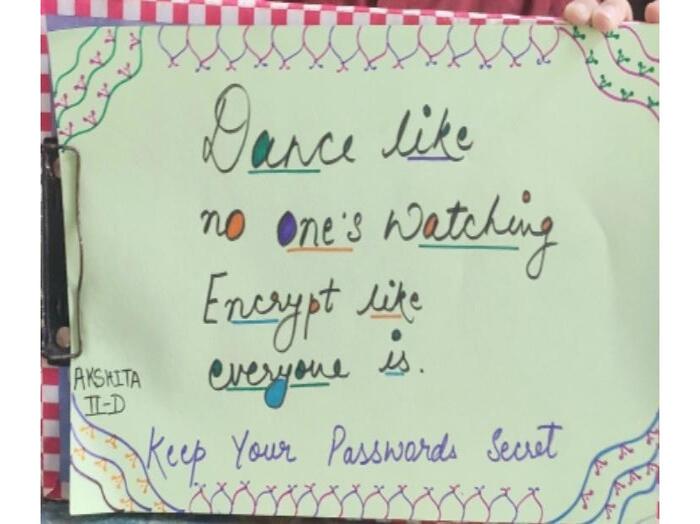 Dance like
no one's watching
Encrypt like
everyone is.
AKSHITA
II-D
Keep Your Passwards Secret